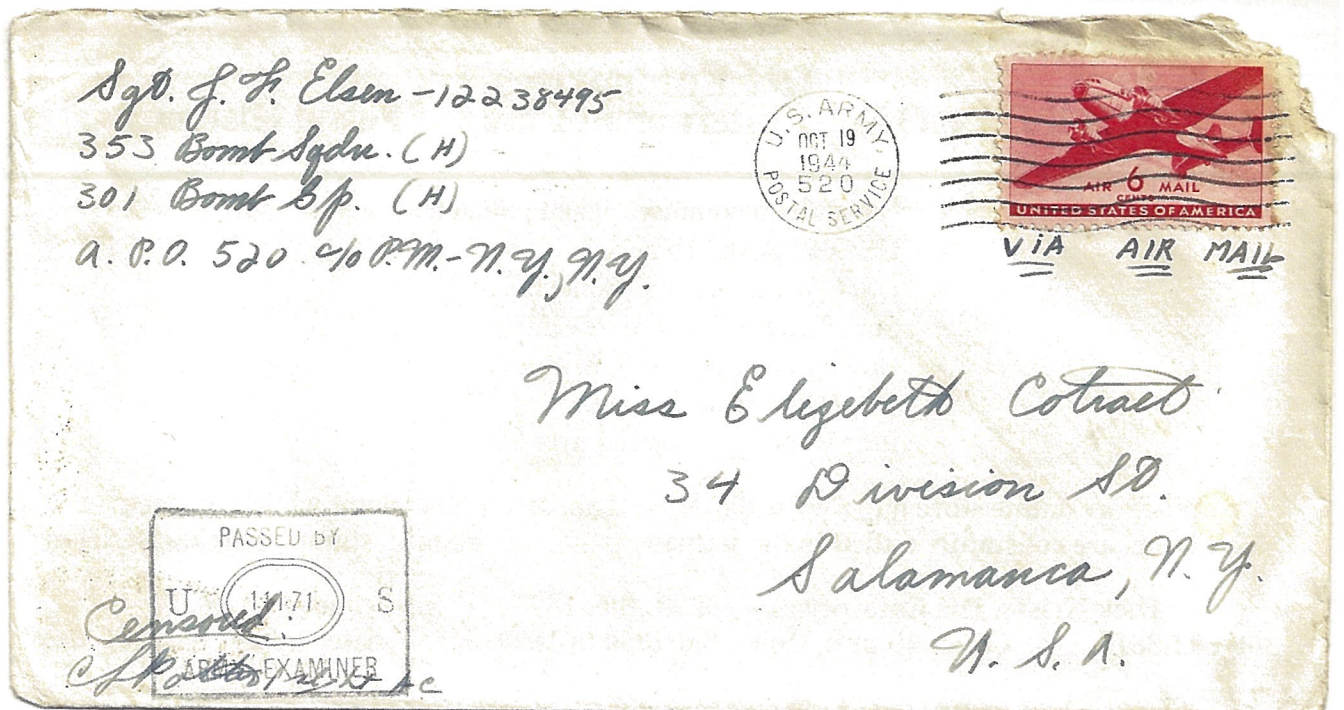 Sgt. J. F. Elsen - 12238495
353 Bomb Sqdn. (H)
301 Bomb Gp. (H)
A. P.O. 520 c/o P.M. - N.Y., N.Y.
U.S. ARMY
OCT 19
1944
520
POSTAL SERVICE
AIR 6 MAIL
CENTS
UNITED STATES OF AMERICA
VIA AIR MAIL
Miss Elizebeth Cotract
34 Division St.
Salamanca, N.Y.
U. S. A.
PASSED BY
U S
Censored.
ARMY EXAMINER